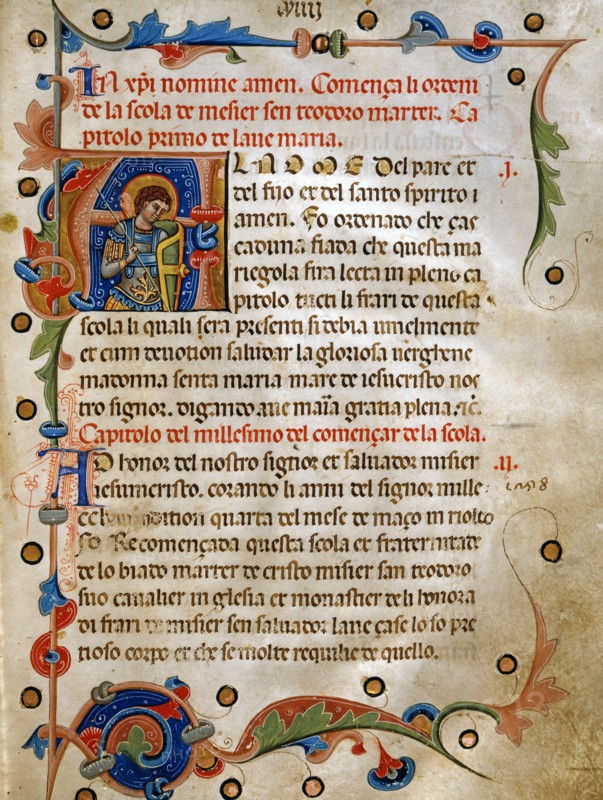 viiij
IN xp̄i nomine amen. Comença li ordeni
de la scola de mesier sen teodoro marter. Ca
pitolo primo de laue maria.
AL NOME Del pare et .j.
del fiio et del santo spirito i
amen. Fo ordenado che çaş
caduna fiada che questa ma
riegola sira lecta in pleno ca
pitolo tucti li frari de questa
scola li quali sera presenti si debia umelmente
et cum deuotion saludar la gloriosa uerghene
madonna senta maria mare de iesucristo nos
tro signor. digando aue maīa gratia plena. ⁊c̄.
Capitolo del millesimo del començar de la scola.
AD honor del nostro signor et saluador misier .ij.
iesumcristo. corando li anni del signor mille
cclviij indition quarta del mese de maço in riolto
fo Recomençada questa scola et fraternitade
de lo biado marter de cristo misier san teodoro
suo caualier in glesia et monastier deli honora
di frari de misier sen saluador laue çase lo so pre
tioso corpo et che se molte requilie de quello.